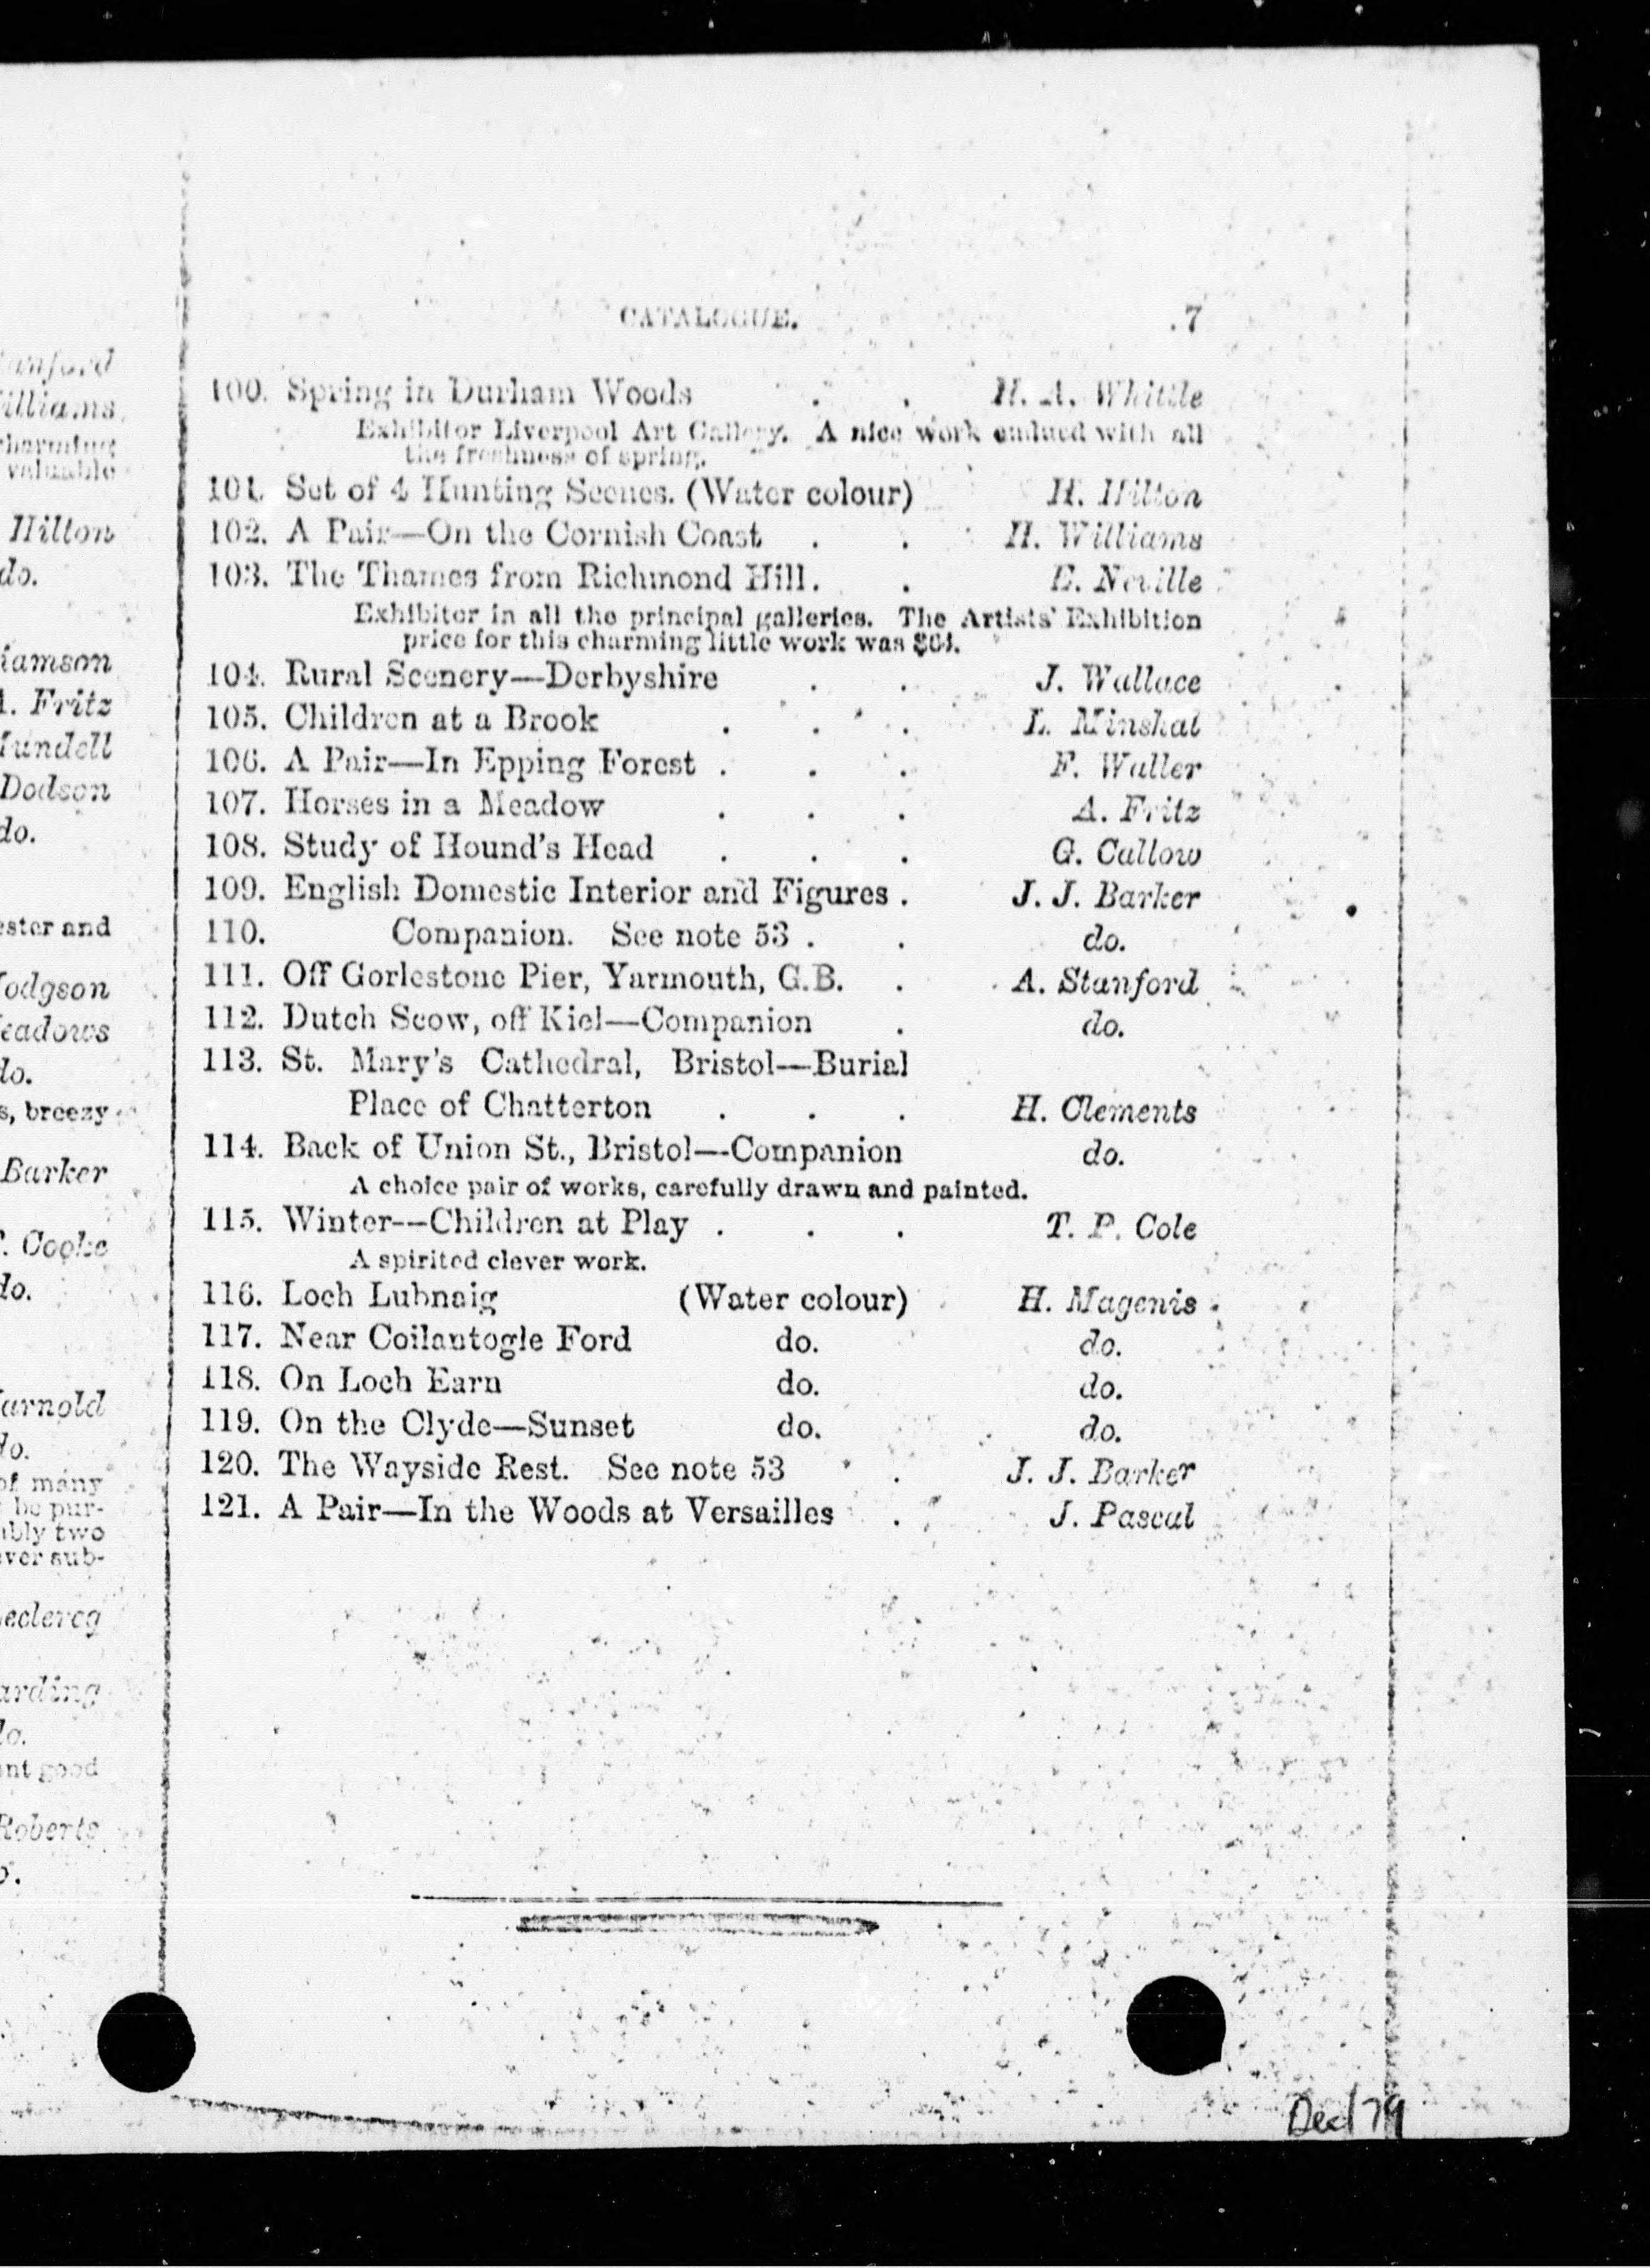 anford
illiams
charming
valuable
Hilton
do.
iamson
A. Fritz
Mundell
Dodson
do.
ester and
odgson
eadows
do.
s, breezy
Barker
Cooke
do.
arnold
do.
of many
be pur-
ibly two
ever sub-
eclercq
arding
do.
ent good
Roberts
CATALOGUE. 7
100. Spring in Durham Woods . . H. A. Whittle
Exhibitor Liverpool Art Gallery. A nice work endued with all
the freshness of spring.
101. Set of 4 Hunting Scenes. (Water colour) H. Hilton
102. A Pair—On the Cornish Coast . . H. Williams
103. The Thames from Richmond Hill. . E. Neville
Exhibitor in all the principal galleries. The Artists' Exhibition
price for this charming little work was
104. Rural Scenery—Derbyshire . . J. Wallace
105. Children at a Brook . . . L. Minshal
106. A Pair—In Epping Forest . . . F. Waller
107. Horses in a Meadow . . . A. Fritz
108. Study of Hound's Head . . . G. Callow
109. English Domestic Interior and Figures . J. J. Barker
110. Companion. See note 53 . . do.
111. Off Gorlestone Pier, Yarmouth, G.B. . A. Stanford
112. Dutch Scow, off Kiel—Companion . do.
113. St. Mary's Cathedral, Bristol—Burial
Place of Chatterton . . . H. Clements
114. Back of Union St., Bristol—Companion do.
A choice pair of works, carefully drawn and painted.
115. Winter—Children at Play . . . T. P. Cole
A spirited clever work.
116. Loch Lubnaig (Water colour) H. Magenis
117. Near Coilantogle Ford do. do.
118. On Loch Earn do. do.
119. On the Clyde—Sunset do. do.
120. The Wayside Rest. See note 53 . . J. J. Barker
121. A Pair—In the Woods at Versailles . J. Pascal
Dec/79